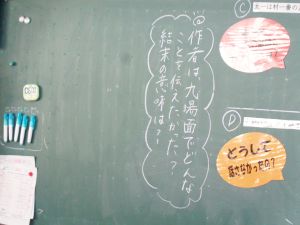 作者は、九場面でどんな
ことを伝えたかった？
結末の意味は？
C
太一は村一番の
D
どうして
話さなかったの？